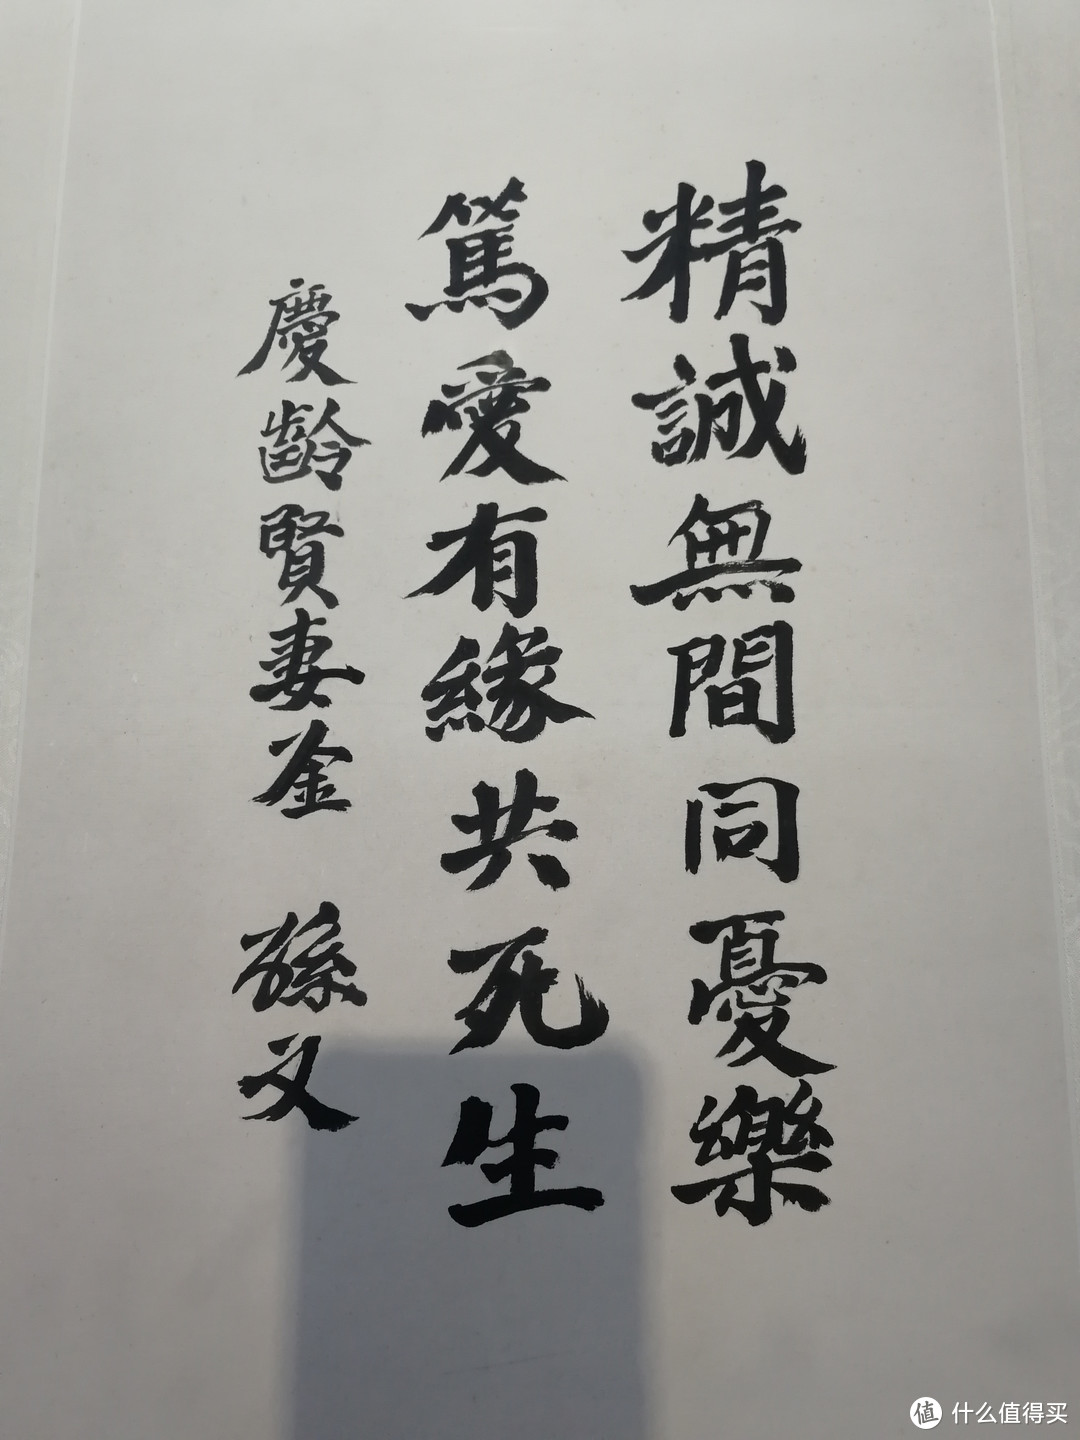 精誠無間同憂樂
篤愛有緣共死生
慶齡賢妻鉴 孫文
值 什么值得买